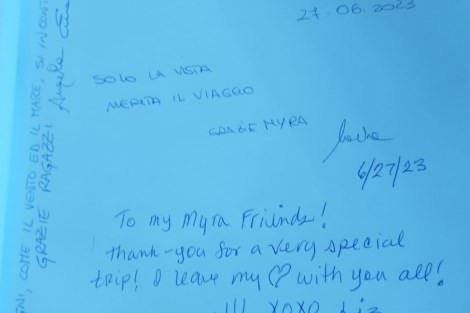 27.06.2023
SOLO LA VISTA
MERITA IL VIAGGIO
GRAZIE MYRA
6/27/23
To my Myra Friends!
Thank-you for a very special
trip! I leave my ♡ with you all!
!!! XOXO Liz
, COME IL VENTO ED IL MARE, SI
GRAZIE RAGAZZI Angela